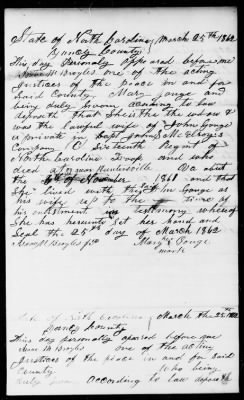 State of North Carolina } March 25th 1862
Yancy County }
This day personaly appeared before me
Broyles one of the acting
Justices of the peace in and for
said County Mary gouge and
being duly sworn according to law
deposeth that She is the widow &
was the lawful wife of John Gouge
a private in Capt John
Company C Sixteenth Regmt of
North Carolina Troops and who
died at or near Huntersville Va about
the of November 1861 and that
She lived with the John Gouge as
his wife up to the time of
his enlistment in testimony whereof
She has hereunto set her hand and
Seal the 25th day of March 1862
Broyles Mary Gouge
mark
State of North Carolina } March the 25th 1862
Yancy County
This day personaly apeared before me
Broyles one of the acting
Justices of the peace in and for said
County Who being
duly according to law deposeth